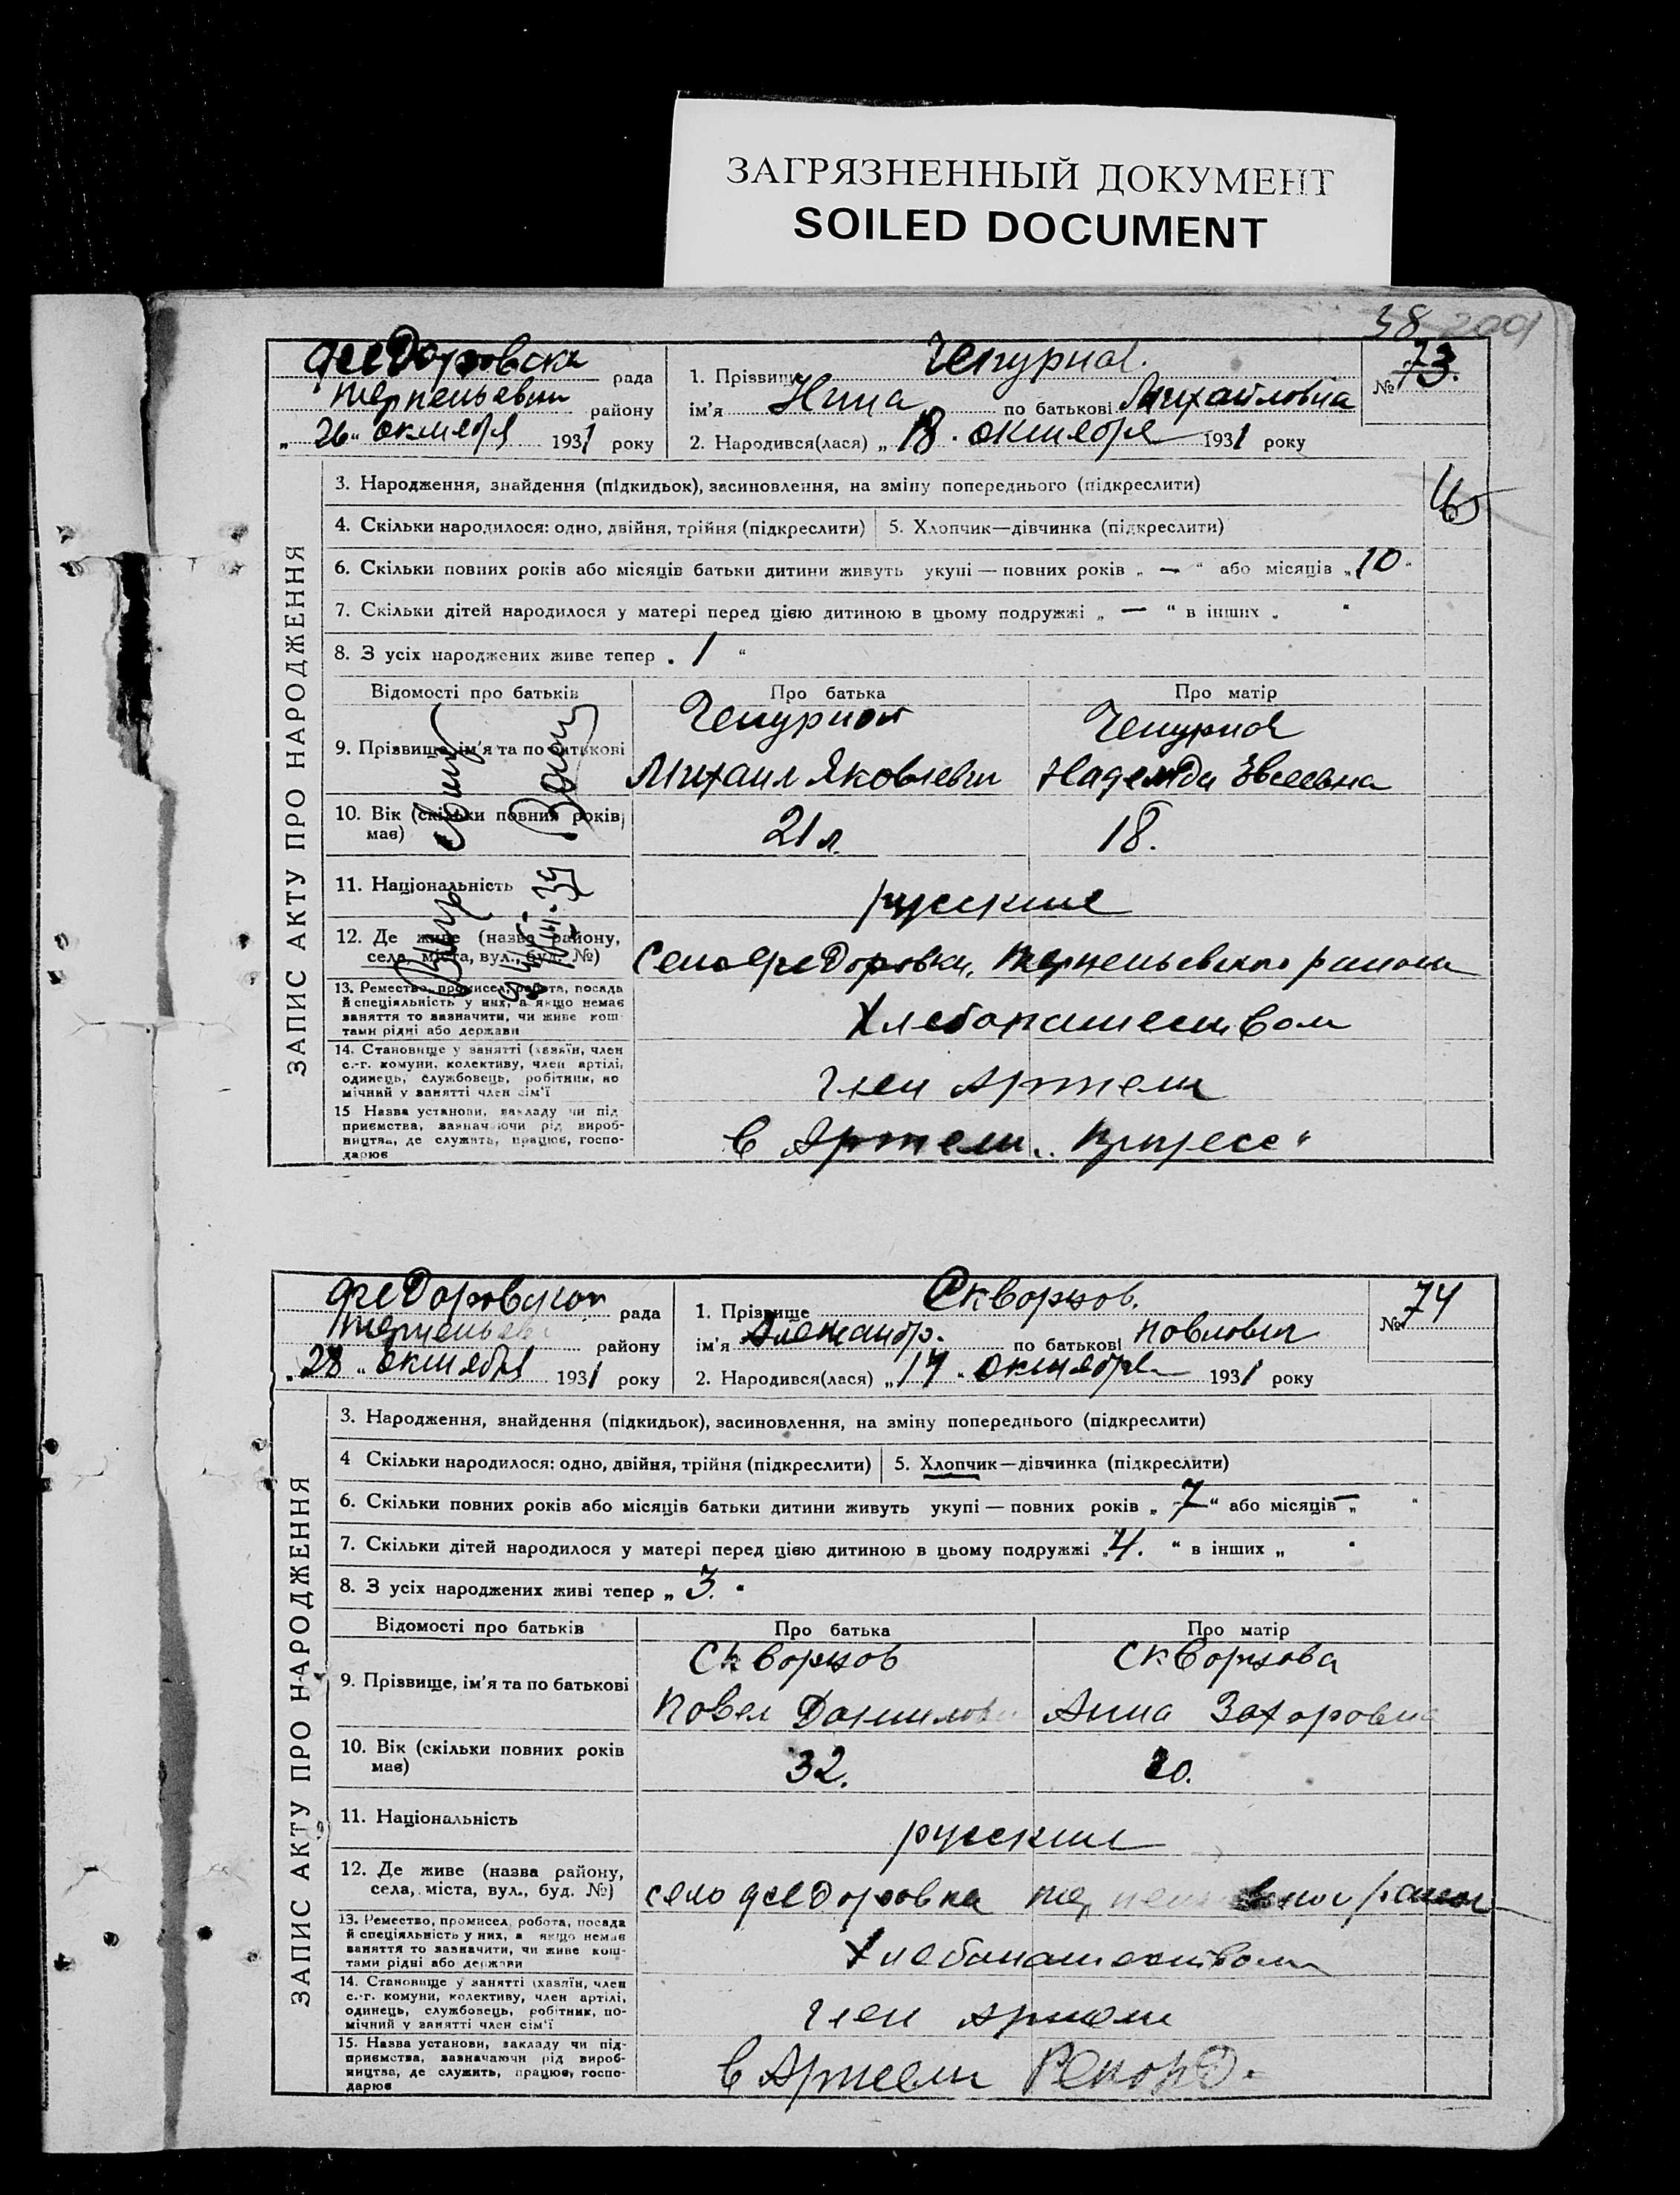 ЗАГРЯЗНЕННЫЙ ДОКУМЕНТ
SOILED DOCUMENT
38 200
ЗАПИС АКТУ ПРО НАРОДЖЕННЯ
Федоровска рада
район
„26“ октября 1931 року
1. Прізвище Чепурная.
ім'я Нина по батькові Михайловна
№ 73.
2. Народився(лася) „18. октября 1931 року
3. Народження, знайдення (підкидьок), засиновлення, на зміну попереднього (підкреслити)
4. Скільки народилося: одно, двійня, трійня (підкреслити) 5. Хлопчик—дівчинка (підкреслити)
6. Скільки повних років або місяців батьки дитини живуть укупі — повних років „ — “ або місяців „10“
7. Скільки дітей народилося у матері перед цією дитиною в цьому подружжі „ — “ в інших „ “
8. З усіх народжених живе тепер „ 1 “
Відомості про батьків Про батька Про матір
9. Прізвище, ім'я та по батькові
Чепурной Чепурная
Михаил Яковлевич Надежда Евсеевна
10. Вік (скільки повних років має) 21 л. 18.
11. Національність русские
12. Де живе (назва району, села, міста, вул., буд. №) Село Федоровка, района
13. Ремество, промисел, робота, посада
й спеціяльність у них, а якщо немає
заняття то зазначити, чи живе кош-
тами рідні або держави
Хлебопашеством
14. Становище у занятті (хазяїн, член
с.-г. комуни, колективу, член артілі,
одинець, службовець, робітник, по
мічний у занятті член сім'ї
член Артели
15 Назва установи, закладу чи під
приємства, зазначаючи рід вироб-
ництва, де служить, працює, госпо-
дарює
в Артели „Прогресс“
ЗАПИС АКТУ ПРО НАРОДЖЕННЯ
Федоровской рада
району
„28„ октября 1931 року
1. Прізвище Скворцов.
ім'я Александр. по батькові Повлович
№ 74
2. Народився(лася) „17„ октября 1931 року
3. Народження, знайдення (підкидьок), засиновлення, на зміну попереднього (підкреслити)
4 Скільки народилося: одно, двійня, трійня (підкреслити) 5. Хлопчик—дівчинка (підкреслити)
6. Скільки повних років або місяців батьки дитини живуть укупі — повних років „ 7 “ або місяців „ — “
7. Скільки дітей народилося у матері перед цією дитиною в цьому подружжі „4. “ в інших „ “
8. З усіх народжених живі тепер „ 3. “
Відомості про батьків Про батька Про матір
9. Прізвище, ім'я та по батькові
Скворцов Скворцова
Повел Данилович Анна Захаровна
10. Вік (скільки повних років має) 32. 20.
11. Національність русские
12. Де живе (назва району, села, міста, вул., буд. №) село Федоровка
13. Ремество, промисел, робота, посада
й спеціяльність у них, а якщо немає
заняття то зазначити, чи живе кош-
тами рідні або держави
Хлебопашеством
14. Становище у занятті (хазяїн, член
с.-г. комуни, колективу, член артілі,
одинець, службовець, робітник, по-
мічний у занятті член сім'ї
член Артели
15. Назва установи, закладу чи під-
приємства, зазначаючи рід вироб-
ництва, де служить, працює, госпо-
дарює
в Артели Рекорд.